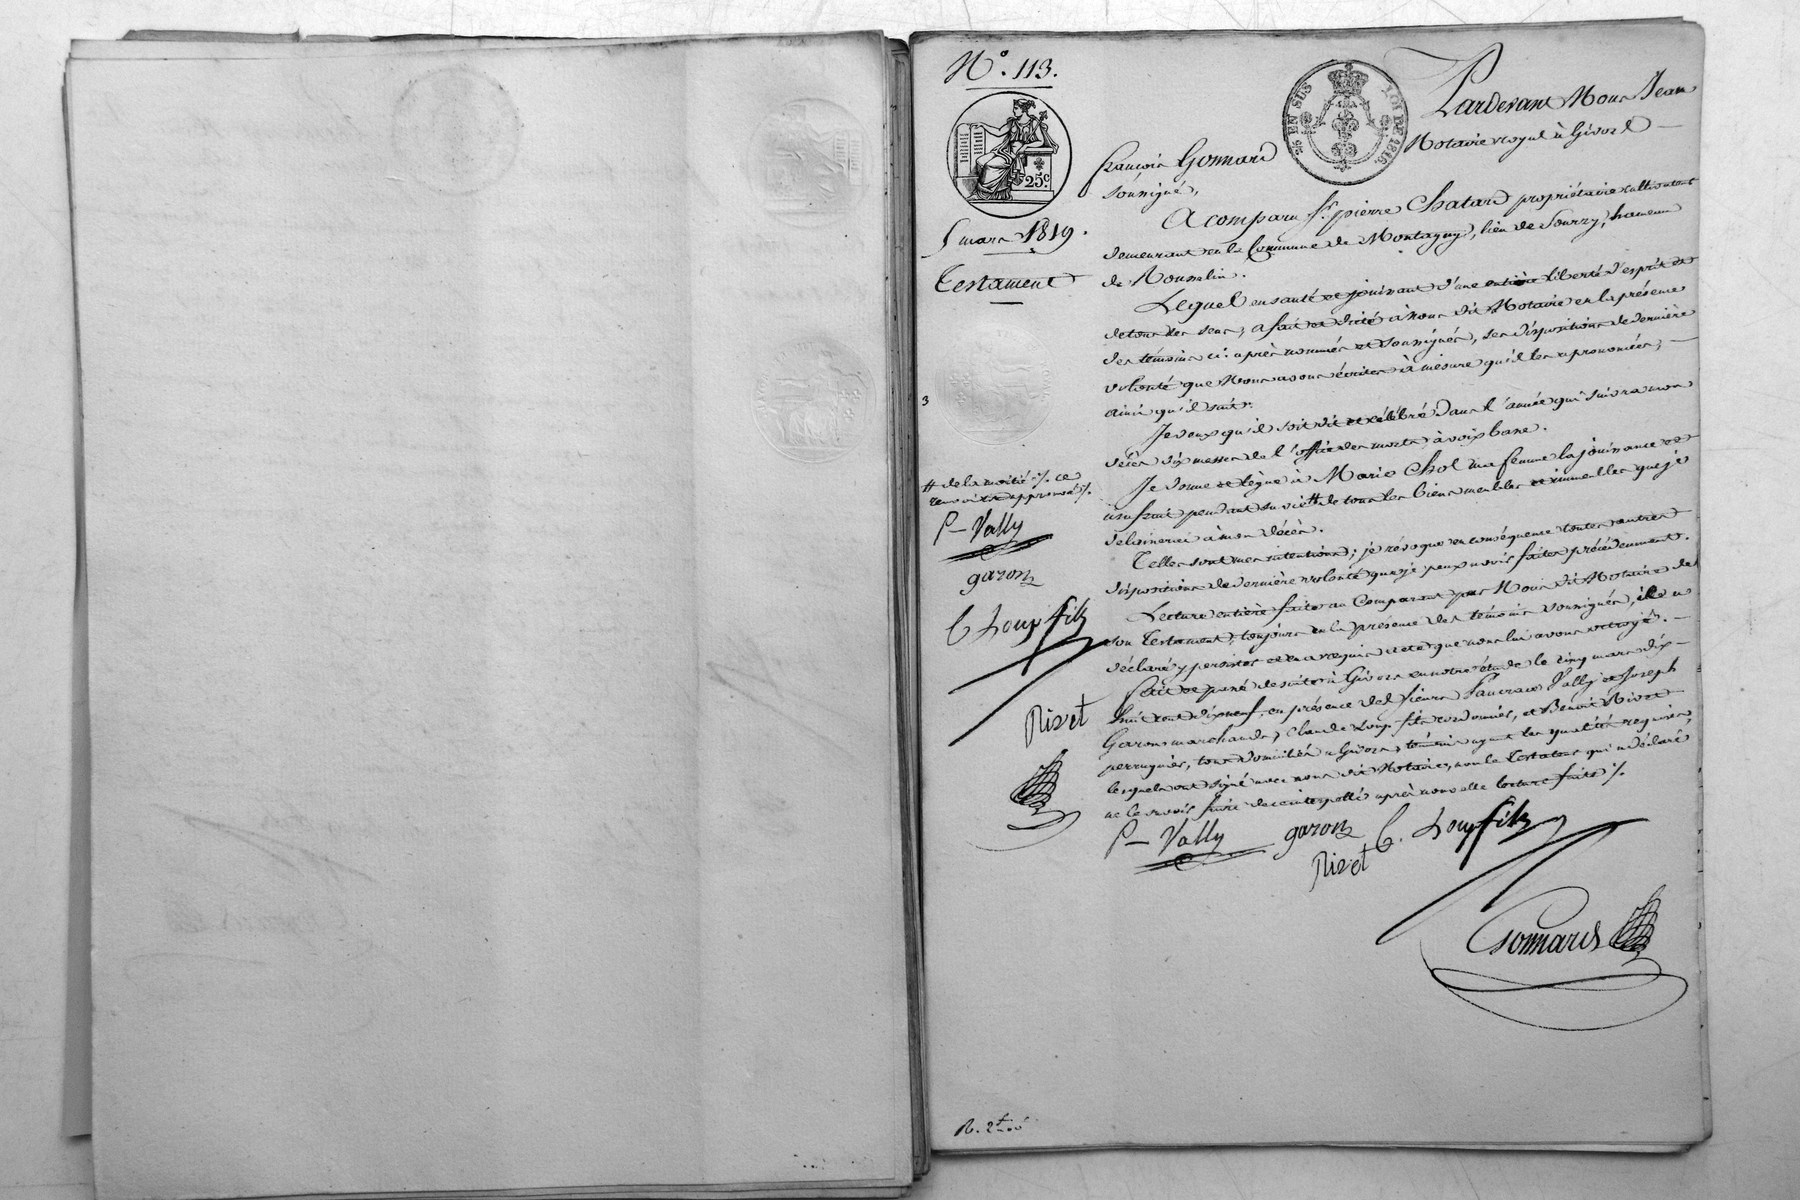 N.° 113.
25 EN SUS
LOI DE 1816.
25c.
5 mars 1819.
Testament
3
Pardevant Nous Jean
françois Gonnard Notaire royal à Givors
soussigné,
A comparu Sr. pierre Chatard propriétaire cultivateur
demeurant en la Commune de Montagny, lieu de Sourzy, hameau
de
Lequel en santé et jouissant d'une entière liberté d'esprit et
de tous ses sens, a fait et dicté à nous dit Notaire en la présence
des témoins ci-après nommés et soussignés, ses dispositions de dernière
volonté que Nous avons écrites à mesure qu'il les a prononcées,
ainsi qu'il suit.
Je veux qu'il soit dit et célébré dans l'année qui suivra mon
décès dix messes de l'office des morts, à voix basse.
Je donne et lègue à Marie Chol ma femme la jouissance et
usufruit pendant sa vie # de tous les biens meubles et immeubles que je
delaisserai à mon décès.
Telles sont mes intentions; je révoque en conséquence toutes autres
dispositions de dernière volonté que je peux avoir faites précédemment.
Lecture entière faite au Comparant par Nous dit Notaire de
son Testament, toujours en la présence des témoins soussignés, il a
déclaré y persister et en a requis acte que nous lui avons octroyé.
fait et passé de suite à Givors en notre étude le cinq mars dix-
huit cent dix neuf, en présence des sieurs Pancrace Vally et Joseph
Garon marchands, Claude Loup fils cordonnier, et Benoît Rivet
perruquier, tous domiciliés à Givors, témoins ayant les qualités requises,
lesquels ont signé avec nous dit Notaire, non le Testateur qui a déclaré
ne le savoir faire de ce interpellé après nouvelle lecture faite ./.
# de la moitié ./. ce
renvoi est approuvé ./.
P- Vally
garon
C Loup fils
Rivet
P- Vally garon C. Loup fils
Rivet
Gonnard